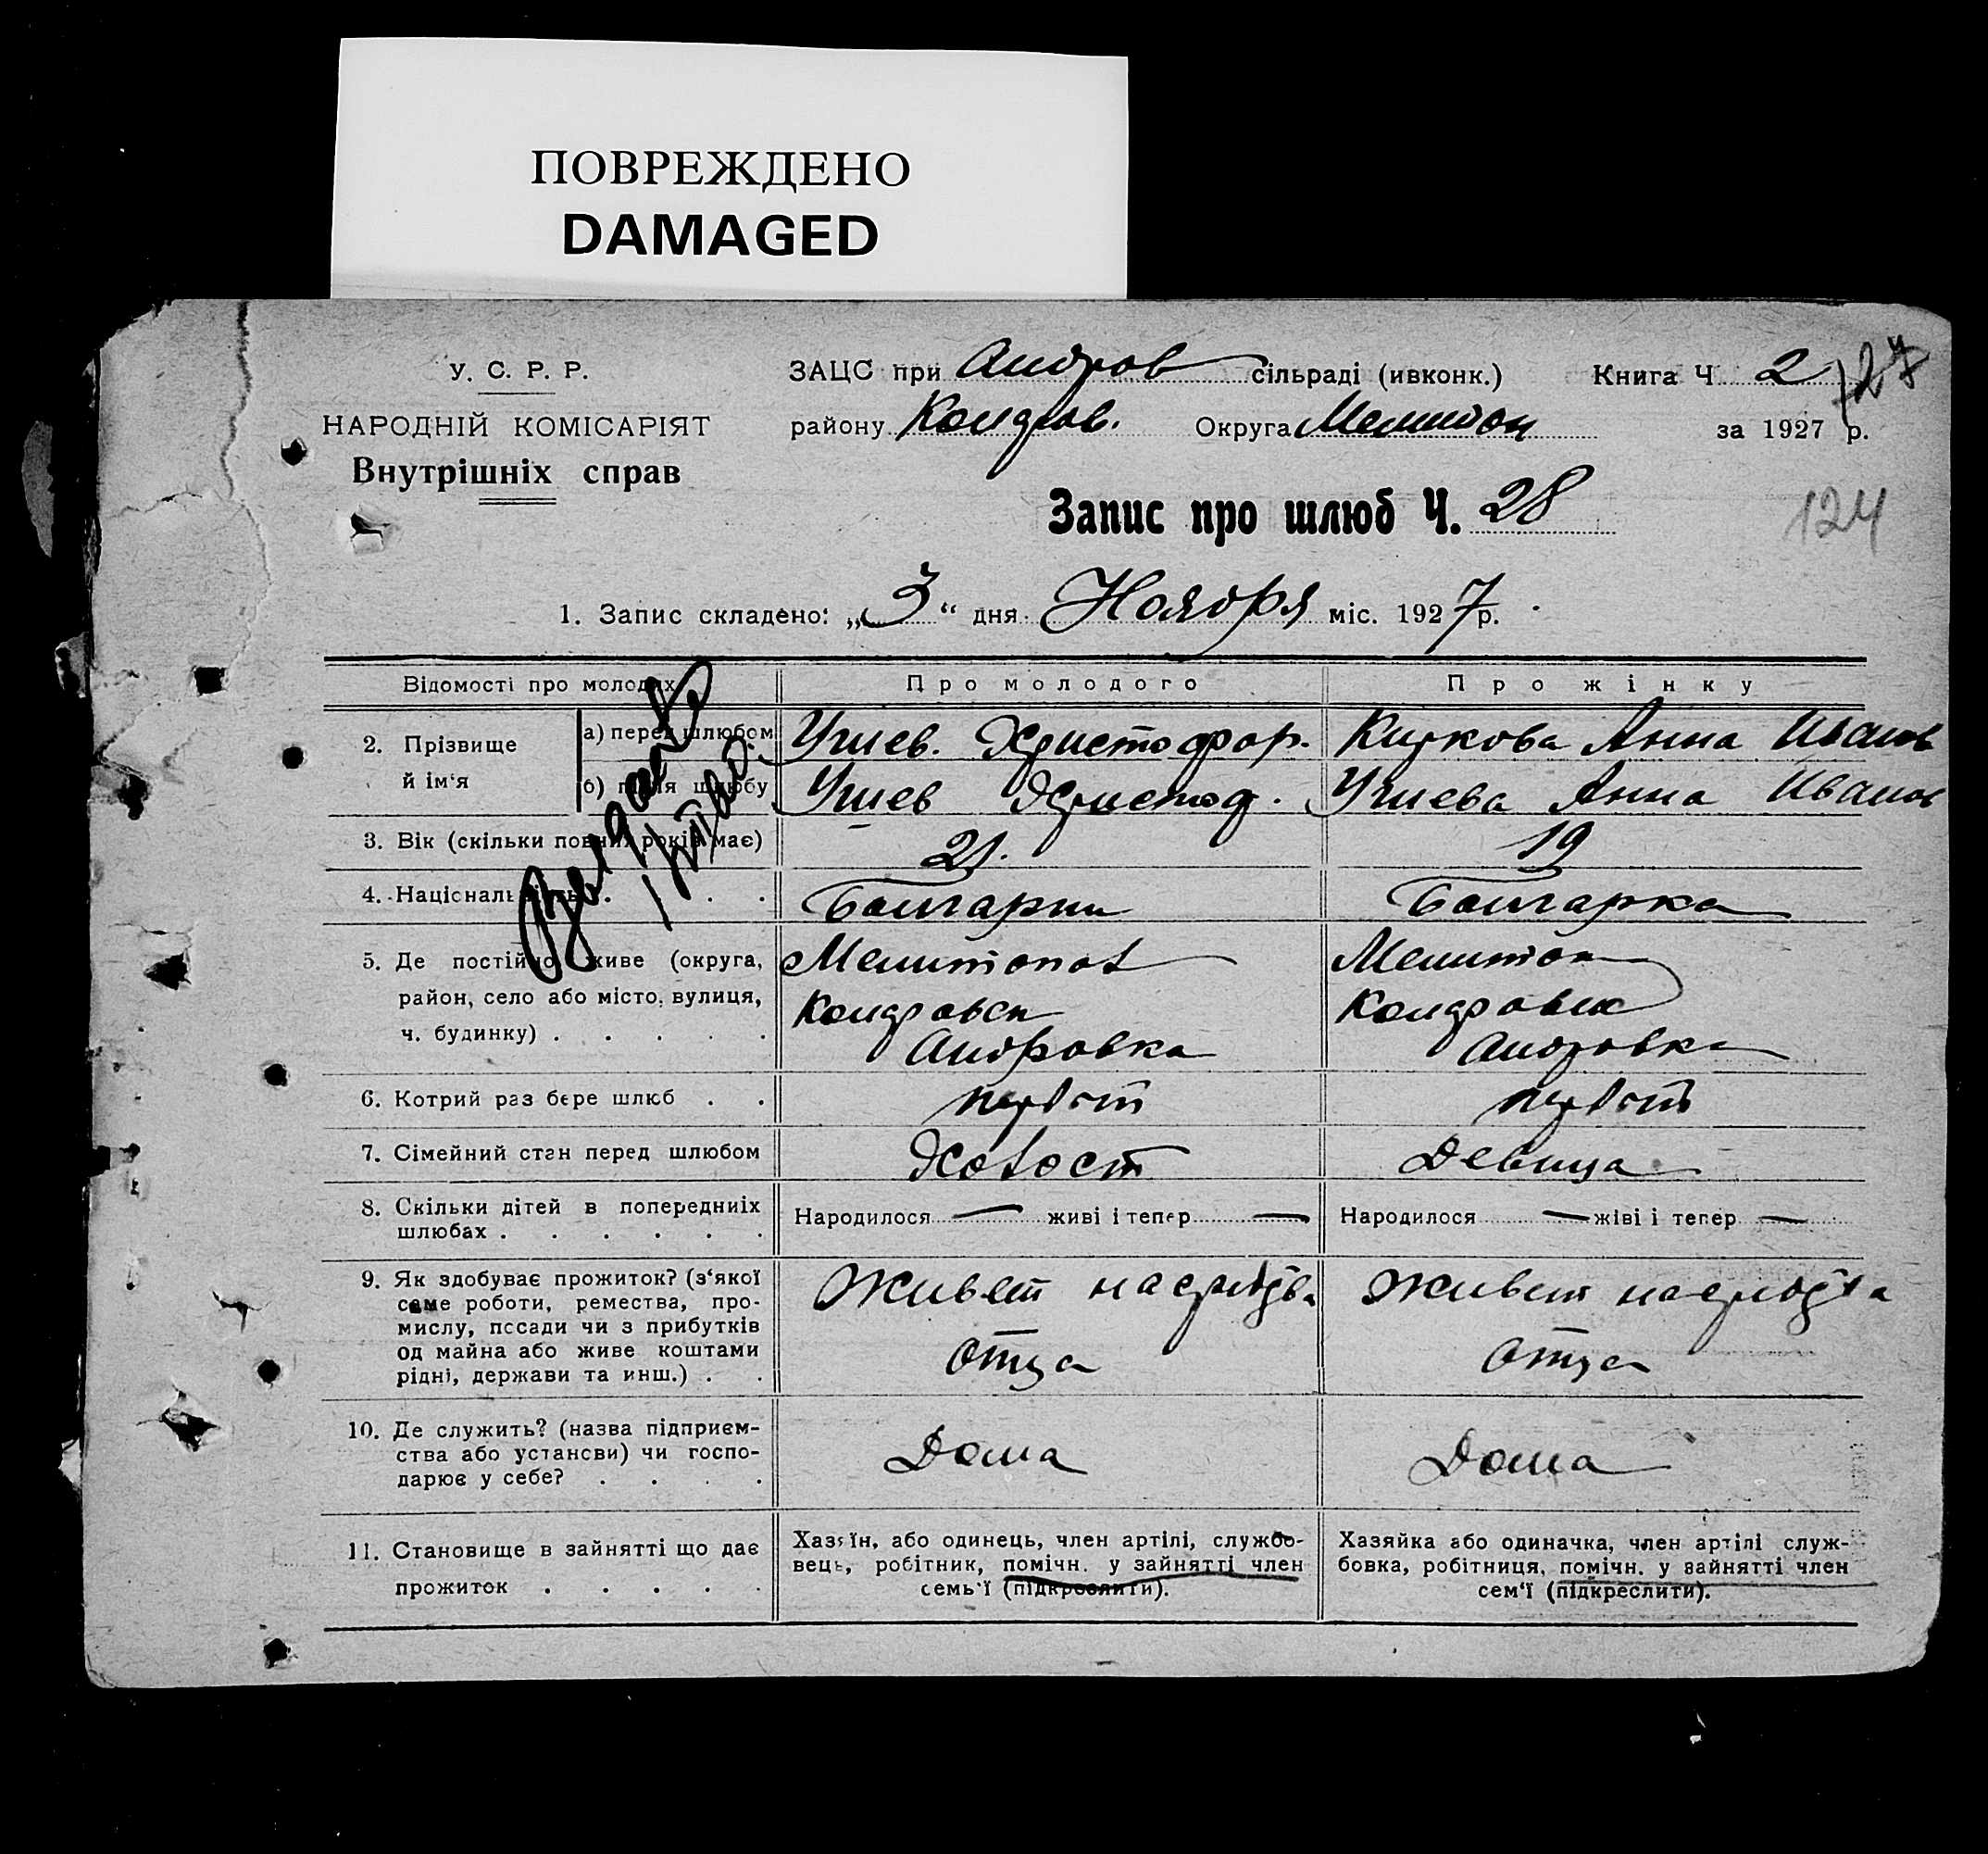 ПОВРЕЖДЕНО
DAMAGED
У. С. Р. Р.
НАРОДНІЙ КОМІСАРІЯТ
Внутрішніх справ
ЗАЦС при Андров сільраді (ивконк.) Книга Ч 2/27
району Колдров. Округа Мелитоп за 1927 р.
Запис про шлюб Ч. 28
124
1. Запис складено: „3“ дня Ноября міс. 1927 р.
Відомості про молодих Про молодого Про жінку
2. Прізвище й ім‘я
а) перед шлюбом Христофор. Киркова Анна Иванов
б) після шлюбу Христоф. Анна Иванов
3. Вік (скільки повних років має) 21. 19
4. Національність Болгарин Болгарка
5. Де постійно живе (округа, Мелитопол Мелитоп
район, село або місто, вулиця, Колдровск Колдровск
ч. будинку) Андровка Андровка
6. Котрий раз бере шлюб первый первый
7. Сімейний стан перед шлюбом Холост Девица
8. Скільки дітей в попередниіх Народилося — живі і тепер — Народилося — жіві і тепер —
шлюбах
9. Як здобуває прожиток? (з‘якої Живет на средства Живет на средства
саме роботи, ремества, про- отца отца
мислу, посади чи з прибутків
од майна або живе коштами
рідні, держави та инш.)
10. Де служить? (назва підприєм- Дома Дома
ства або установи) чи госпо-
дарює у себе?
11. Становище в зайнятті що дає Хазяїн, або одинець, член артілі, службо- Хазяйка або одиначка, член артілі служ-
прожиток вець, робітник, помічн. у зайнятті член бовка, робітниця, помічн. у зайнятті член
семь‘ї (підкреслити). сем‘ї (підкреслити).